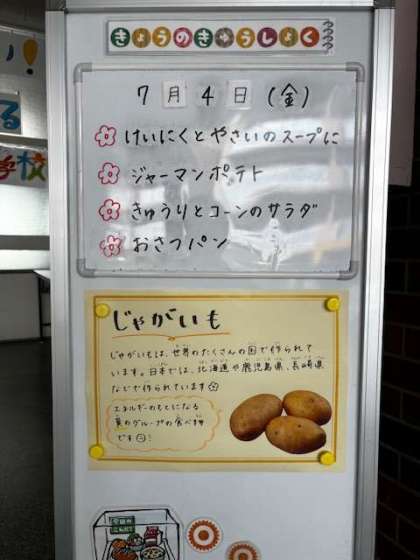 きょうのきゅうしょく
7月4日(金)
けいにくとやさいのスープに
ジャーマンポテト
きゅうりとコーンのサラダ
おさつパン
じゃがいも
じゃがいもは、世界のたくさんの国で作られて
います。日本では、北海道や鹿児島県、長崎県
などで作られています
エネルギーのもとになる
黄のグループの食べ物
です!
る
校